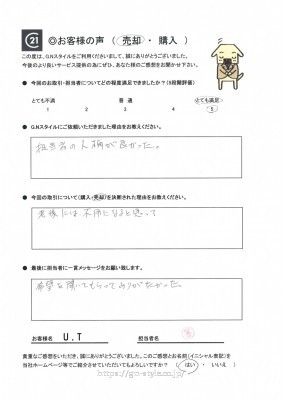 21 ◎お客様の声 ( 売却 ・ 購入 )
この度は、G.Nスタイルをご利用くださいまして、誠にありがとうございました。
今後のより良いサービス提供の為にぜひ、あなた様のご感想をお聞かせ下さい。
● 今回のお取引・担当者についてどの程度満足できましたか?(5段階評価)
とても不満 普 通 とても満足
1 2 3 4 5
● G.Nスタイルにご依頼いただきました理由をお教えください。
担当者の人柄が良かった。
● 今回の取引について(購入・売却)を決断された理由をお教えください。
老後には、不用になると思って
● 最後に担当者に一言メッセージをお願い致します。
希望を聞いてもらってありがたかった。
お客様名 U.T 担当者名
貴重なご感想をいただき、誠にありがとうございました。このご感想とお名前(イニシャル表記)を
当社ホームページ等でご紹介させていただいてもよろしいですか? ( はい ・ いいえ )
https://gn-style.co.jp/